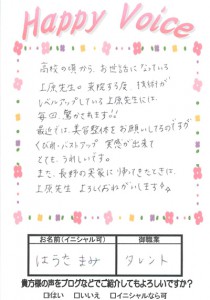 Happy Voice
高校の頃から、お世話になっている
上原先生。来院する度、技術が
レベルアップしている上原先生には、
毎回、驚かされます!!
最近では、美容整体をお願いしてるのですが
くびれ・バストアップ 実感が出来て
とても、うれしいです。
また、長野の実家に帰ってきたときは、
上原先生 よろしくおねがいします
お名前(イニシャル可)
御職業
はらさ まみ
タレント
貴方様の声をブログなどでご紹介してもよろしいですか?
□はい □いいえ □イニシャルなら可